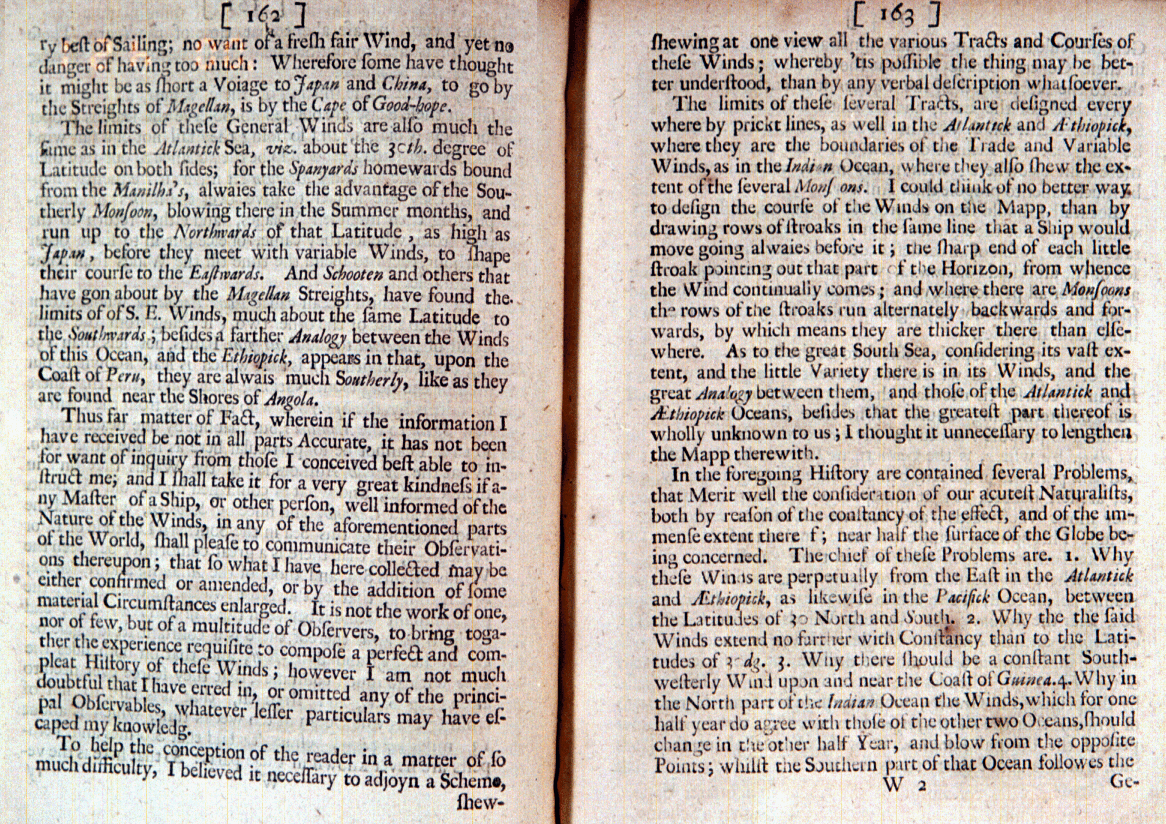 [ 162 ]
ry beſt of Sailing; no want of a freſh fair Wind, and yet no
danger of having too much: Wherefore ſome have thought
it might be as ſhort a Voiage to Japan and China, to go by
the Streights of Magellan, is by the Cape of Good-hope.
The limits of theſe General Winds are alſo much the
ſame as in the Atlantick Sea, viz. about the 30th. degree of
Latitude on both ſides; for the Spanyards homewards bound
from the Manilha's, alwaies take the advantage of the Sou-
therly Monſoon, blowing there in the Summer months, and
run up to the Northwards of that Latitude, as high as
Japan, before they meet with variable Winds, to ſhape
their courſe to the Eaſtwards. And Schooten and others that
have gon about by the Magellan Streights, have found the
limits of of S. E. Winds, much about the ſame Latitude to
the Southwards; beſides a farther Analogy between the Winds
of this Ocean, and the Ethiopick, appears in that, upon the
Coaſt of Peru, they are alwais much Southerly, like as they
are found near the Shores of Angola.
Thus far matter of Fact, wherein if the information I
have received be not in all parts Accurate, it has not been
for want of inquiry from thoſe I conceived beſt able to in-
ſtruct me; and I ſhall take it for a very great kindneſs if a-
ny Maſter of a Ship, or other perſon, well informed of the
Nature of the Winds, in any of the aforementioned parts
of the World, ſhall pleaſe to communicate their Obſervati-
ons thereupon; that ſo what I have here collected may be
either confirmed or amended, or by the addition of ſome
material Circumſtances enlarged. It is not the work of one,
nor of few, but of a multitude of Obſervers, to bring toga-
ther the experience requiſite to compoſe a perfect and com-
pleat Hiſtory of theſe Winds; however I am not much
doubtful that I have erred in, or omitted any of the princi-
pal Obſervables, whatever leſſer particulars may have eſ-
caped my knowledg.
To help the conception of the reader in a matter of ſo
much difficulty, I believed it neceſſary to adjoyn a Scheme,
ſhew-
[ 163 ]
ſhewing at one view all the various Tracts and Courſes of
theſe Winds; whereby 'tis poſſible the thing may be bet-
ter underſtood, than by any verbal deſcription whatſoever.
The limits of theſe ſeveral Tracts, are deſigned every
where by prickt lines, as well in the Atlantick and Æthiopick,
where they are the boundaries of the Trade and Variable
Winds, as in the Indian Ocean, where they alſo ſhew the ex-
tent of the ſeveral Monſoons. I could think of no better way,
to deſign the courſe of the Winds on the Mapp, than by
drawing rows of ſtroaks in the ſame line that a Ship would
move going alwaies before it; the ſharp end of each little
ſtroak pointing out that part of the Horizon, from whence
the Wind continually comes; and where there are Monſoons
the rows of the ſtroaks run alternately backwards and for-
wards, by which means they are thicker there than elſe-
where. As to the great South Sea, conſidering its vaſt ex-
tent, and the little Variety there is in its Winds, and the
great Analogy between them, and thoſe of the Atlantick and
Æthiopick Oceans, beſides that the greateſt part thereof is
wholly unknown to us; I thought it unneceſſary to lengthen
the Mapp therewith.
In the foregoing Hiſtory are contained ſeveral Problems,
that Merit well the conſideration of our acuteſt Naturaliſts,
both by reaſon of the conſtancy of the effect, and of the im-
menſe extent thereof; near half the ſurface of the Globe be-
ing concerned. The chief of theſe Problems are. 1. Why
theſe Winds are perpetually from the Eaſt in the Atlantick
and Æthiopick, as likewiſe in the Pacifick Ocean, between
the Latitudes of 30 North and South. 2. Why the the ſaid
Winds extend no farther with Conſtancy than to the Lati-
tudes of 30 dg. 3. Why there ſhould be a conſtant South-
weſterly Wind upon and near the Coaſt of Guinea. 4. Why in
the North part of the Indian Ocean the Winds, which for one
half year do agree with thoſe of the other two Oceans, ſhould
change in the other half Year, and blow from the oppoſite
Points; whilſt the Southern part of that Ocean followes the
W 2 Ge-